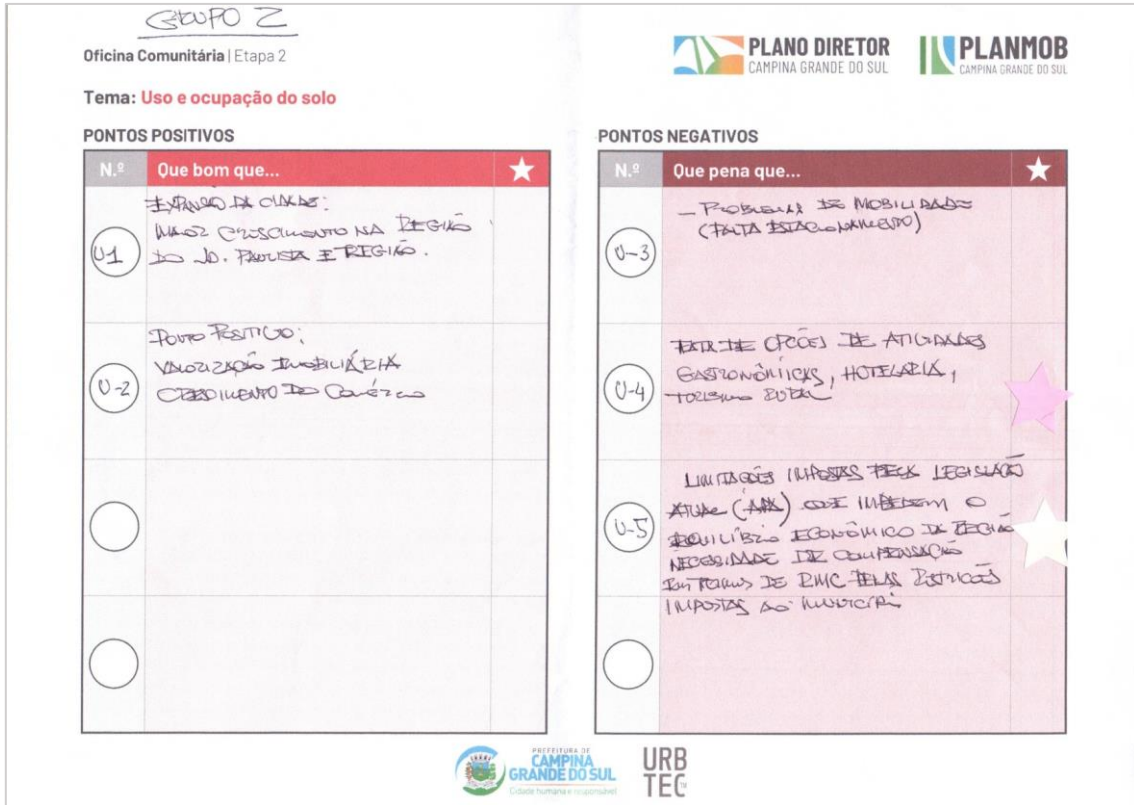 GRUPO 2
Oficina Comunitária | Etapa 2
PLANO DIRETOR
CAMPINA GRANDE DO SUL
PLANMOB
CAMPINA GRANDE DO SUL
Tema: Uso e ocupação do solo
PONTOS POSITIVOS
N.º Que bom que...
U-1
EXPANSÃO DA CIDADE:
MAIOR CRESCIMENTO NA REGIÃO
DO JD. PAULISTA E REGIÃO.
U-2
PONTO POSITIVO:
VALORIZAÇÃO IMOBILIÁRIA
CRESCIMENTO DO COMÉRCIO
PONTOS NEGATIVOS
N.º Que pena que...
U-3
- PROBLEMA DE MOBILIDADE
(FALTA ESTACIONAMENTO)
U-4
FALTA DE OPÇÕES DE ATIVIDADES
GASTRONÔMICAS, HOTELARIA,
TURISMO RURAL
U-5
LIMITAÇÕES IMPOSTAS PELA LEGISLAÇÃO
ATUAL (APA) QUE IMPEDEM O
EQUILÍBRIO ECONÔMICO DA REGIÃO
NECESSIDADE DE COMPENSAÇÃO
EM TERMOS DE RMC PELAS RESTRIÇÕES
IMPOSTAS AO MUNICÍPIO
PREFEITURA DE
CAMPINA
GRANDE DO SUL
Cidade humana e responsável
URB
TEC™